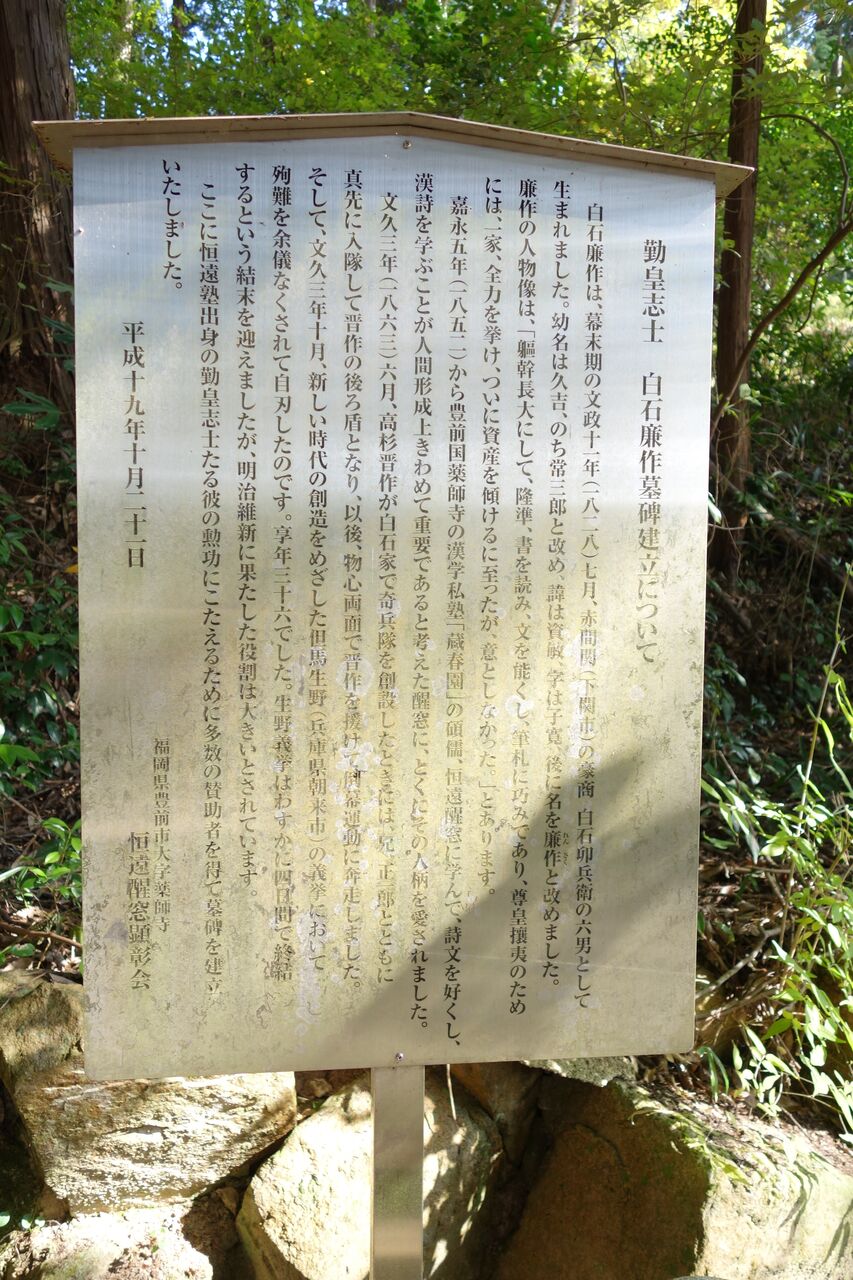 勤皇志士　白石廉作墓碑建立について
白石廉作は、幕末期の文政十一年(一八二八)七月、赤間関(下関市)の豪商　白石卯兵衛の六男として
生まれました。幼名は久吉、のち常三郎と改め、諱は資敏、字は子寛、後に名を廉作と改めました。
れん さく
廉作の人物像は、「軀幹長大にして、隆準、書を読み、文を能くし、筆札に巧みであり、尊皇攘夷のため
には、一家、全力を挙げ、ついに資産を傾けるに至ったが、意としなかった。」とあります。
嘉永五年(一八五二)から豊前国薬師寺の漢学私塾「蔵春園」の碩儒、恒遠醒窓に学んで、詩文を好くし、
漢詩を学ぶことが人間形成上きわめて重要であると考えた醒窓に、とくにその人柄を愛されました。
文久三年(一八六三)六月、高杉晋作が白石家で奇兵隊を創設したときには、兄、正一郎とともに
真先に入隊して晋作の後ろ盾となり、以後、物心両面で晋作を援けて倒幕運動に奔走しました。
そして、文久三年十月、新しい時代の創造をめざした但馬生野(兵庫県朝来市)の義挙において
殉難を余儀なくされて自刃したのです。享年三十六でした。生野義挙はわずかに四日間で終結
するという結末を迎えましたが、明治維新に果たした役割は大きいとされています。
ここに恒遠塾出身の勤皇志士たる彼の勲功にこたえるために多数の賛助者を得て墓碑を建立
いたしました。
平成十九年十月二十二日
福岡県豊前市大字薬師寺
恒遠醒窓顕彰会